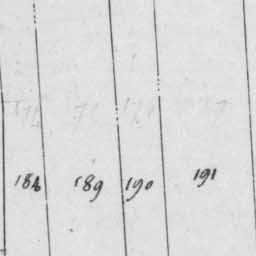 186 189 190 191